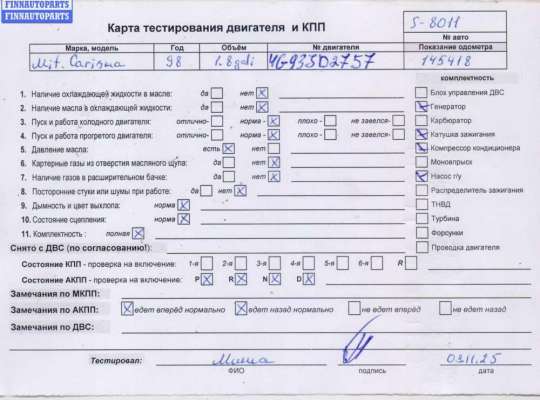 FINNAUTOPARTS
FINNAUTOPARTS
Карта тестирования двигателя и КПП
S-8011
№ авто
Марка, модель Год Объём № двигателя Показание одометра
Mit. Carisma 98 1.8 gdi 4G93SD2757 145418
комплектность
1. Наличие охлаждающей жидкости в масле: да нет
2. Наличие масла в охлаждающей жидкости: да нет
3. Пуск и работа холодного двигателя: отлично- норма - плохо - не завелся-
4. Пуск и работа прогретого двигателя: отлично- норма - плохо - не завелся-
5. Давление масла: есть нет
6. Картерные газы из отверстия масляного щупа: да нет
7. Наличие газов в расширительном бачке: да нет
8. Посторонние стуки или шумы при работе: да нет
9. Дымность и цвет выхлопа: норма
10. Состояние сцепления: норма
11. Комплектность : полная
Блок управления ДВС
Генератор
Карбюратор
Катушка зажигания
Компрессор кондиционера
Моновпрыск
Насос г/у
Распределитель зажигания
ТНВД
Турбина
Форсунки
Проводка двигателя
Снято с ДВС (по согласованию!):
Состояние КПП - проверка на включение: 1-я 2-я 3-я 4-я 5-я 6-я R
Состояние АКПП - проверка на включение: P R N D
Замечания по МКПП:
Замечания по АКПП: едет вперёд нормально едет назад нормально не едет вперёд не едет назад
Замечания по ДВС:
Тестировал: Миша 03.11.25
ФИО подпись дата